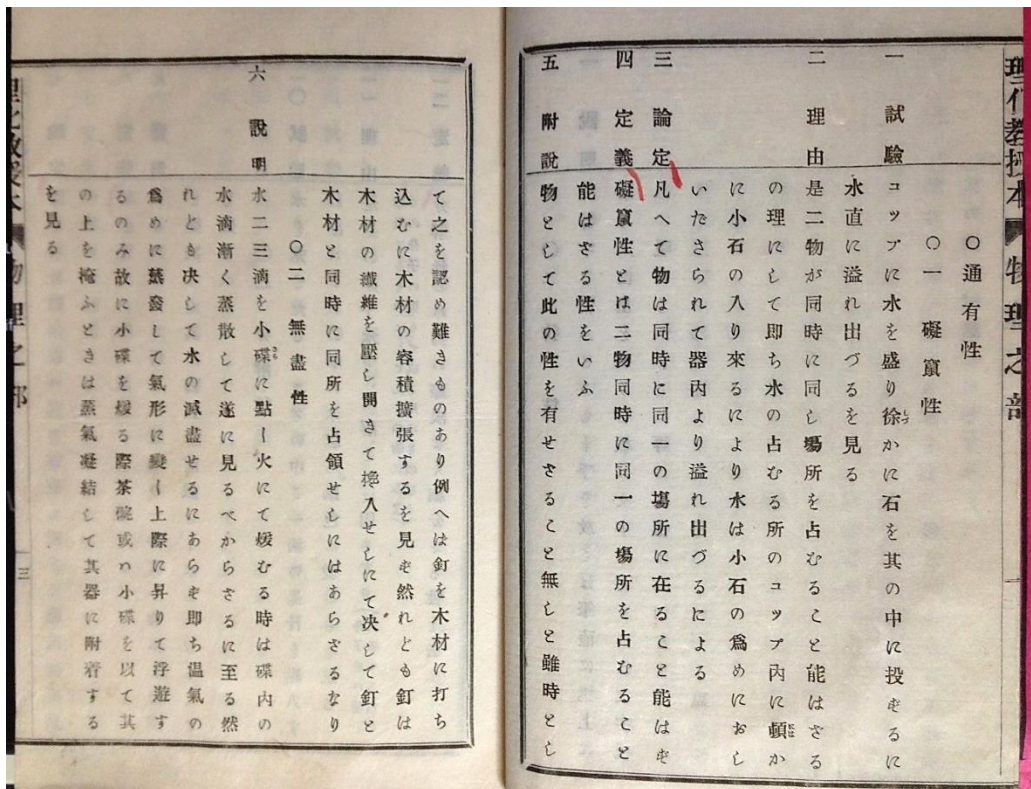 理化教授本 物理之部
○通有性
○一 礙竄性
一 試驗 コップに水を盛り徐かに石を其の中に投ずるに
水直に溢れ出づるを見る
二 理由 是二物が同時に同し塲所を占むること能はさる
の理にして即ち水の占むる所のコップ內に頓か
に小石の入り來るにより水は小石の爲めにおし
いたさられて器內より溢れ出づるによる
三 論定 凡へて物は同時に同一の塲所に在ること能はず
四 定義 礙竄性とは二物同時に同一の塲所を占むること
能はさる性をいふ
五 附說 物として此の性を有せさること無しと雖時とし
て之を認め難きものあり例へは釘を木材に打ち
込むに木材の容積擴張するを見ず然れども釘は
木材の纖維を壓し開きて攙入せしにて决して釘と
木材と同時に同所を占領せしにはあらざるなり
○二 無盡性
六 說明 水二三滴を小碟に點し火にて煖むる時は碟內の
水滴漸く蒸散して遂に見るべからさるに至る然
れども决して水の滅盡せるにあらず即ち温氣の
爲めに蒸發して氣形に變し上際に昇りて浮遊す
るのみ故に小碟を煖る際茶碗或ハ小碟を以て其
の上を掩ふときは蒸氣凝結して其器に附着する
を見る
理化教授本 物理之部
三